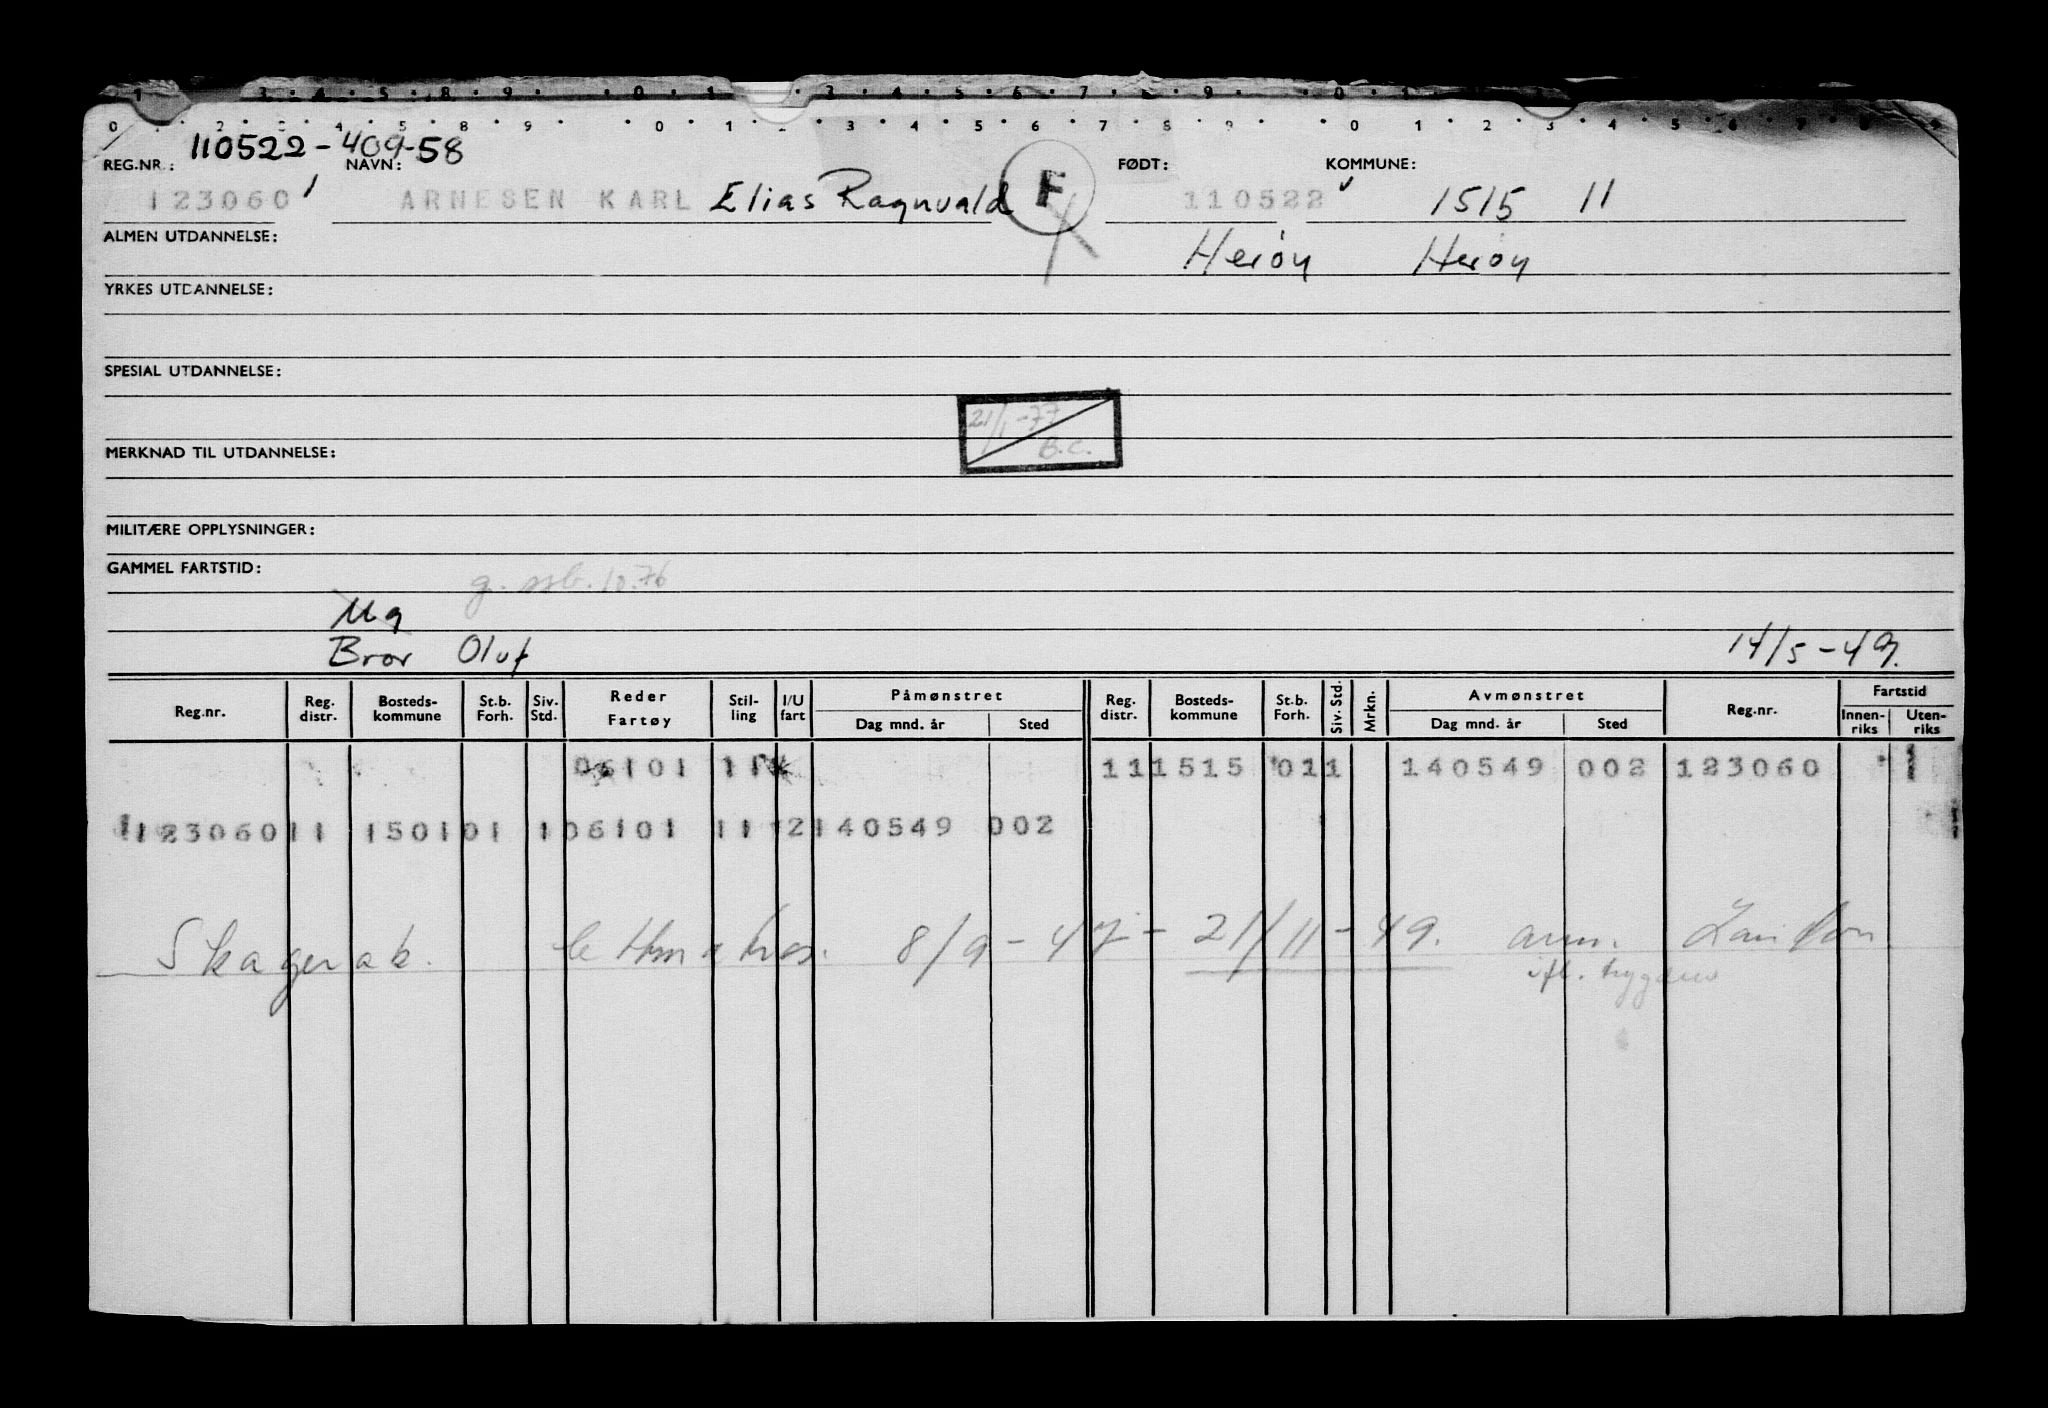 110522-409-58
REG.NR.: NAVN: FØDT: KOMMUNE:
123060 ARNESEN KARL Elias Ragnvald F 110522 1515 11
ALMEN UTDANNELSE: Herøy Herøy
YRKES UTDANNELSE:
SPESIAL UTDANNELSE:
21/1-77
B.C.
MERKNAD TIL UTDANNELSE:
MILITÆRE OPPLYSNINGER:
GAMMEL FARTSTID:
10.76
Ug
Bror Oluf 14/5-49.
Reg.nr. Reg. distr. Bosteds- kommune St.b. Forh. Siv. Std. Reder Fartøy Stil- ling I/U fart Påmønstret Dag mnd. år Sted Reg. distr. Bosteds- kommune St.b. Forh. Siv. Std. Mrkn. Avmønstret Dag mnd. år Sted Reg.nr. Fartstid Innen- riks Uten- riks
06101 11 111515 011 140549 002 123060 1
12306011 150101 106101 11 2140549 002
Skagerak. 8/9-47- 21/11-49.